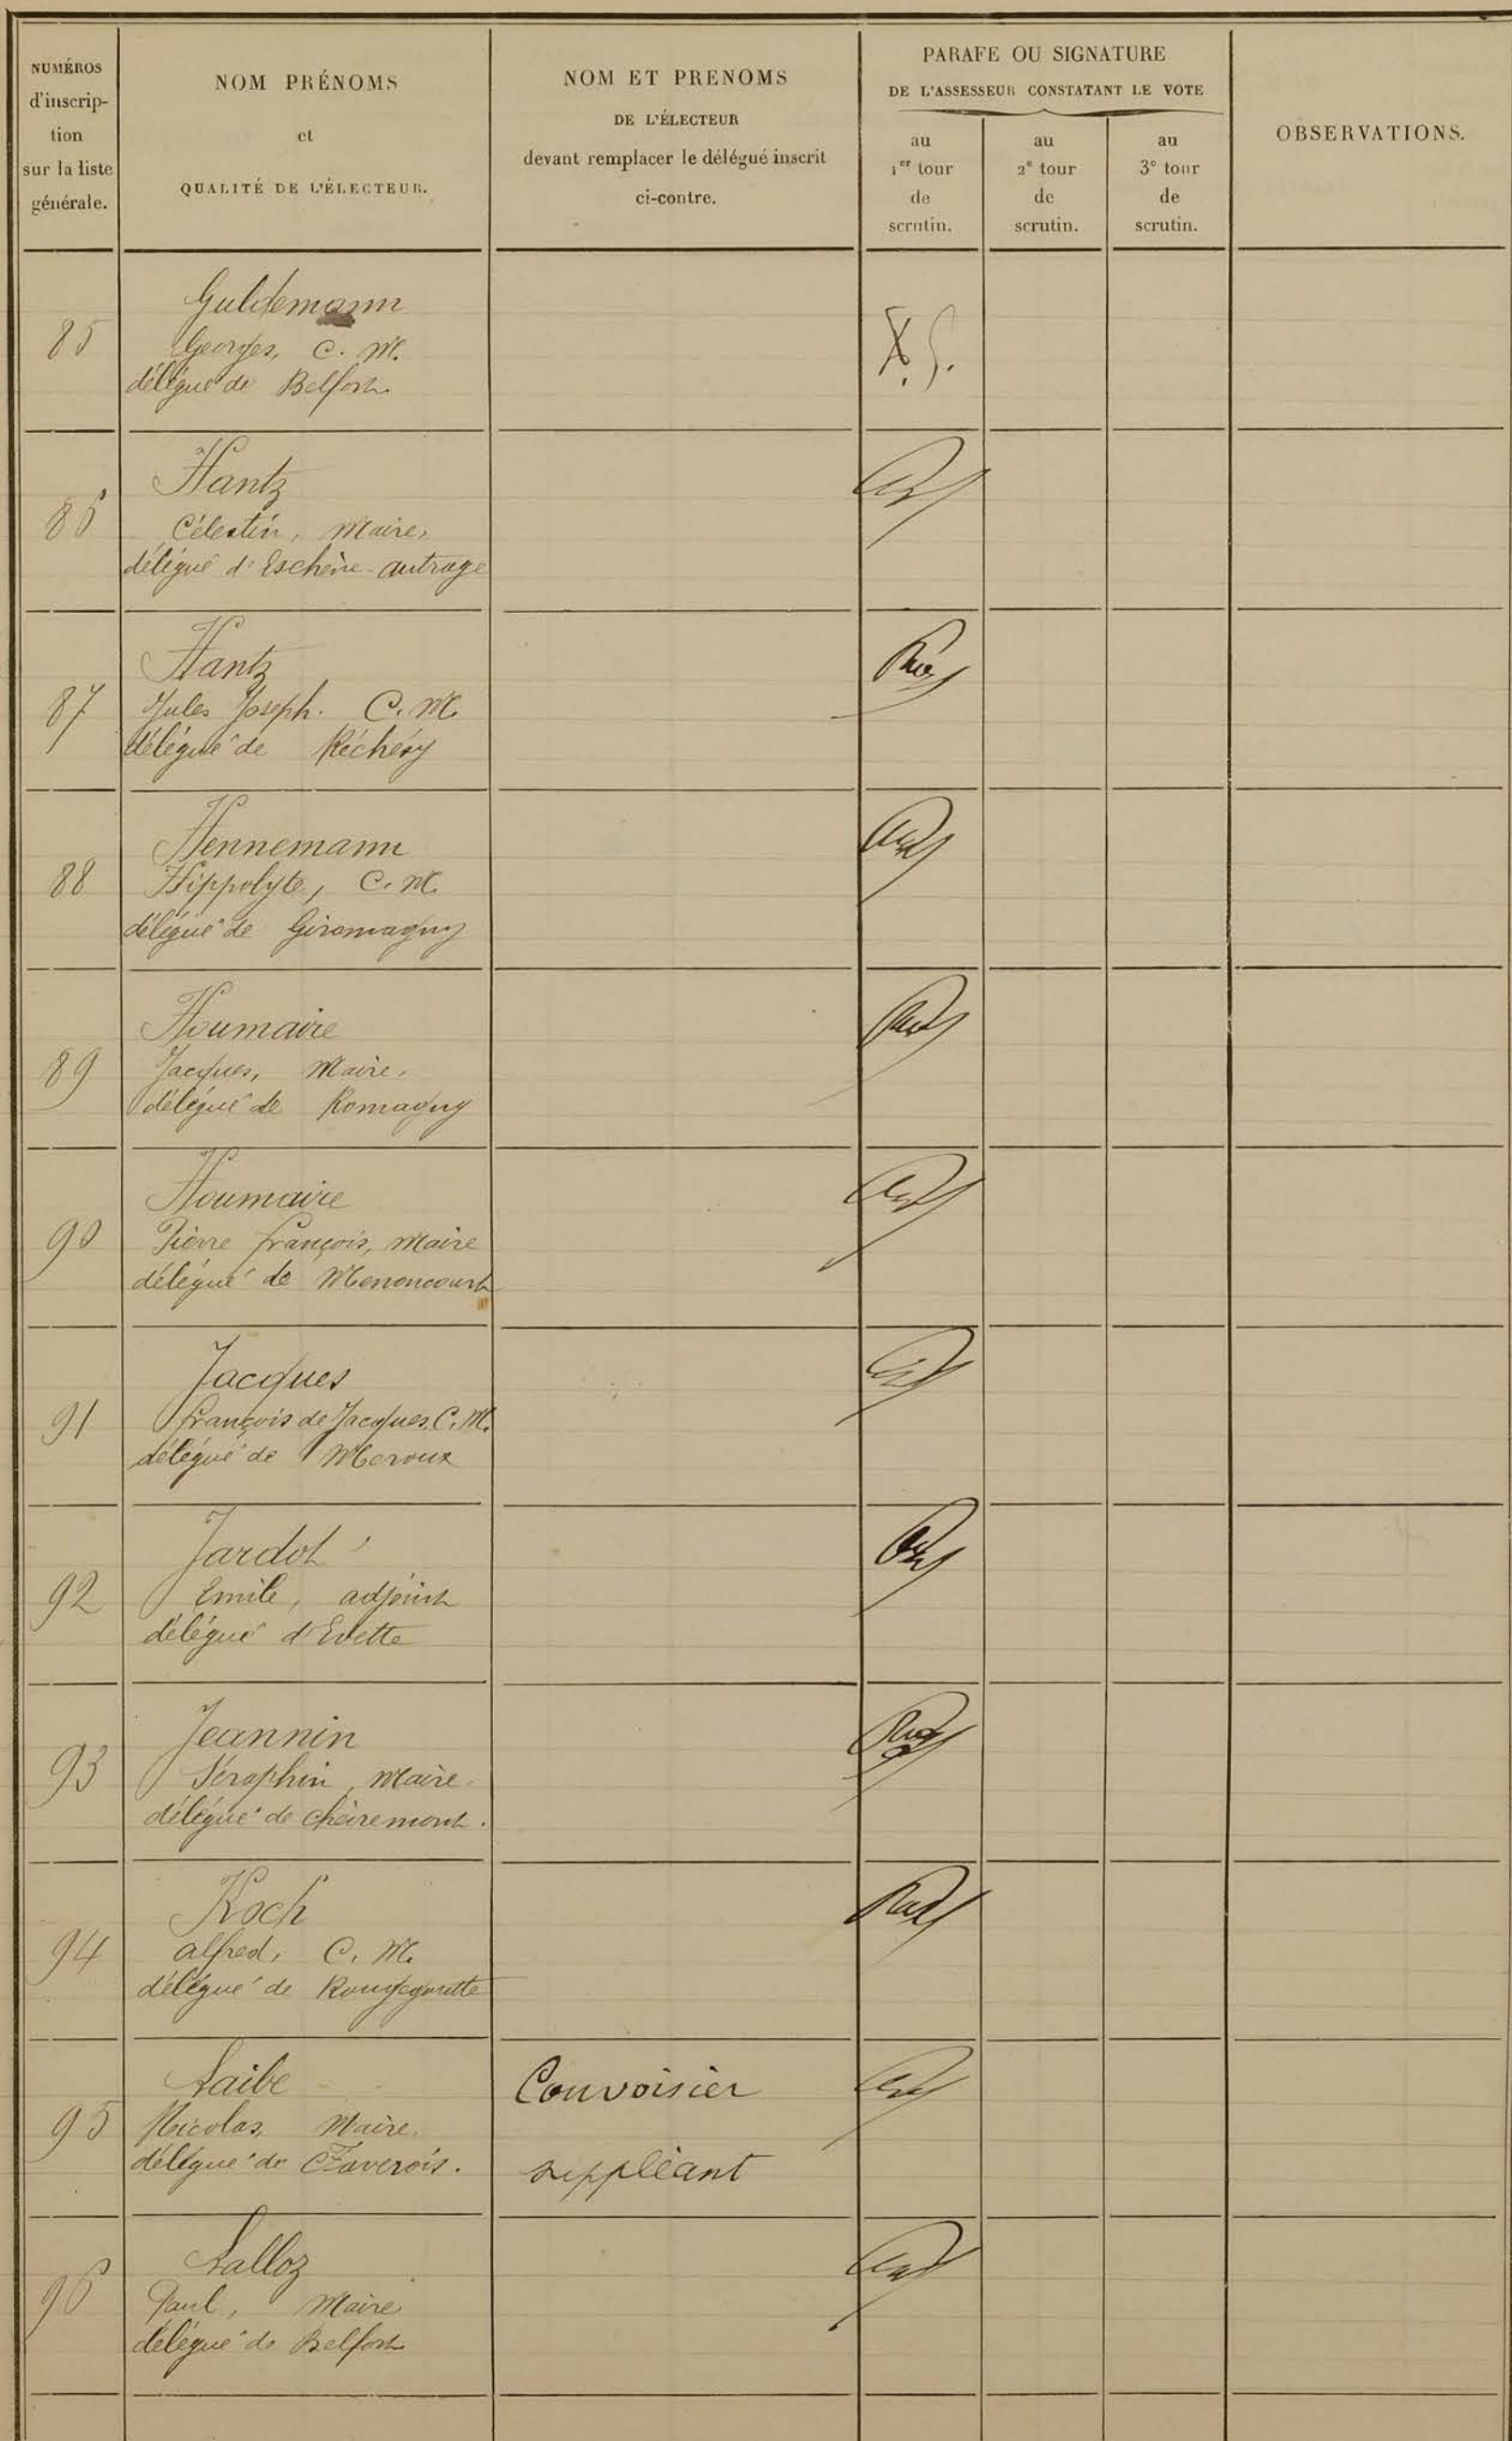 NUMÉROS
d'inscrip-
tion
sur la liste
générale.
NOM PRÉNOMS
et
QUALITÉ DE L'ÉLECTEUR.
NOM ET PRENOMS
DE L'ÉLECTEUR
devant remplacer le délégué inscrit
ci-contre.
PARAFE OU SIGNATURE
DE L'ASSESSEUR CONSTATANT LE VOTE
au
1er tour
de
scrutin.
au
2e tour
de
scrutin.
au
3e tour
de
scrutin.
OBSERVATIONS.
85
Guldemann
Georges, C. M.
délégué de Belfort
86
Hantz
Célestin, Maire,
délégué d'Eschène-autrage
87
Hantz
Jules Joseph. C. M.
délégué de Réchésy
88
Hennemann
Hippolyte, C. M.
délégué de Giromagny
89
Houmaire
Jacques, Maire,
délégué de Romagny
90
Houmaire
Pierre françois, Maire
délégué de Menoncourt
91
Jacques
françois de Jacques, C. M.
délégué de Meroux
92
Jardot
Emile, adjoint
délégué d'Evette
93
Jeannin
Séraphin, Maire
délégué de chèvremont.
94
Koch
alfred, C. M.
délégué de Rougegoutte
95
Laibe
Nicolas, Maire,
délégué de Faverois.
Couvoisier
suppléant
96
Lalloz
Paul, Maire
délégué de Belfort